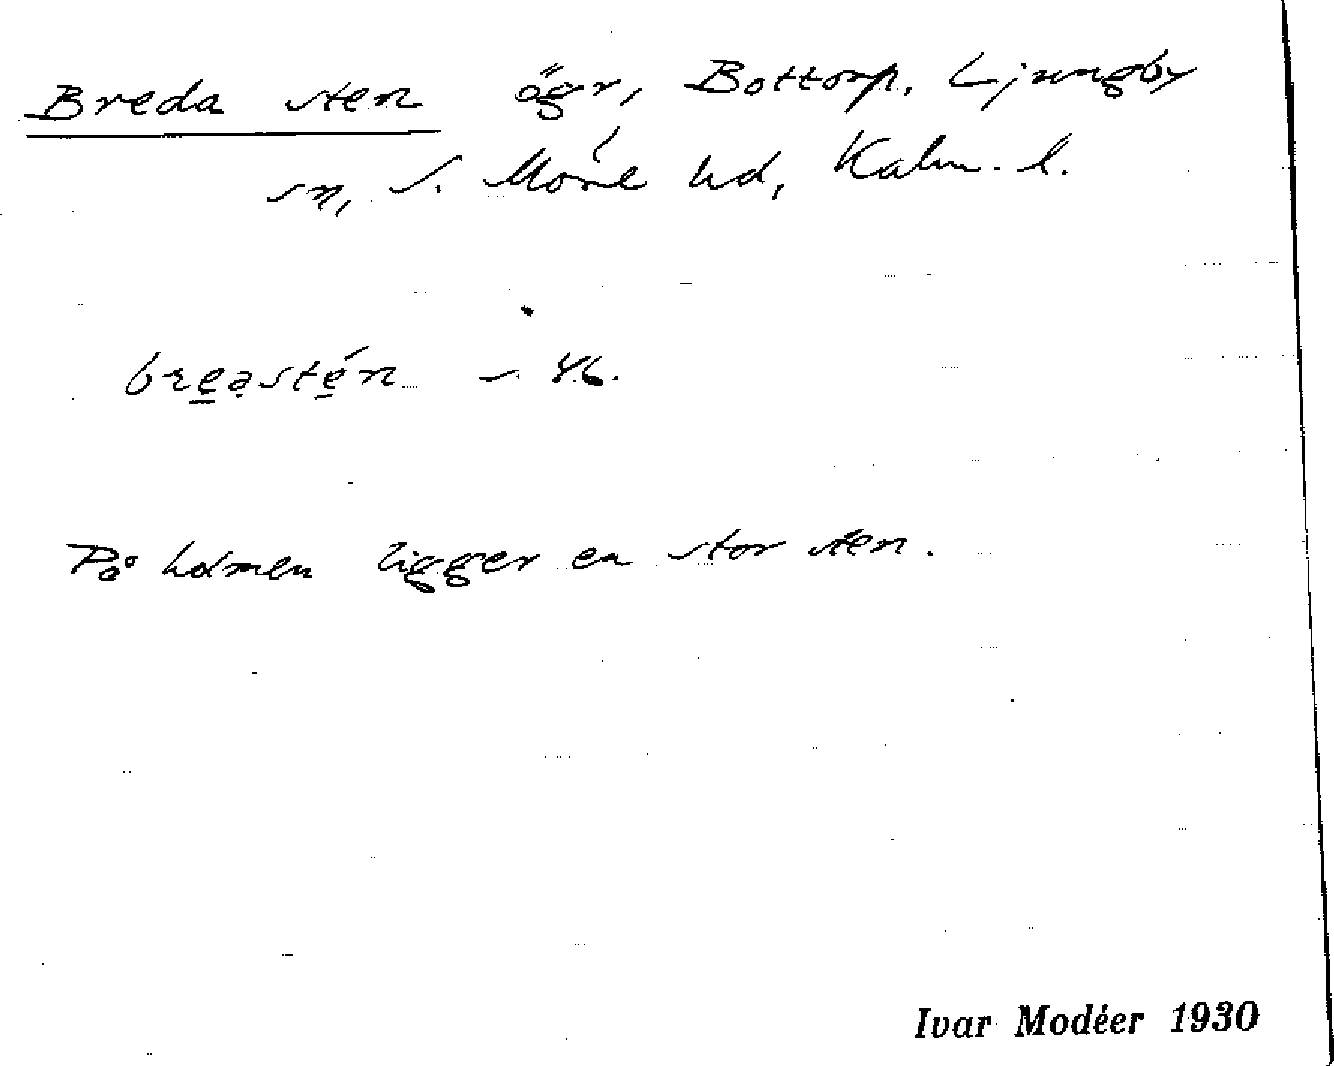 Breda sten ögr, Bottorp, Ljungby
sn, S. Möre hd, Kalm. l.
breastén
På holmen ligger en stor sten.
Ivar Modéer 1930